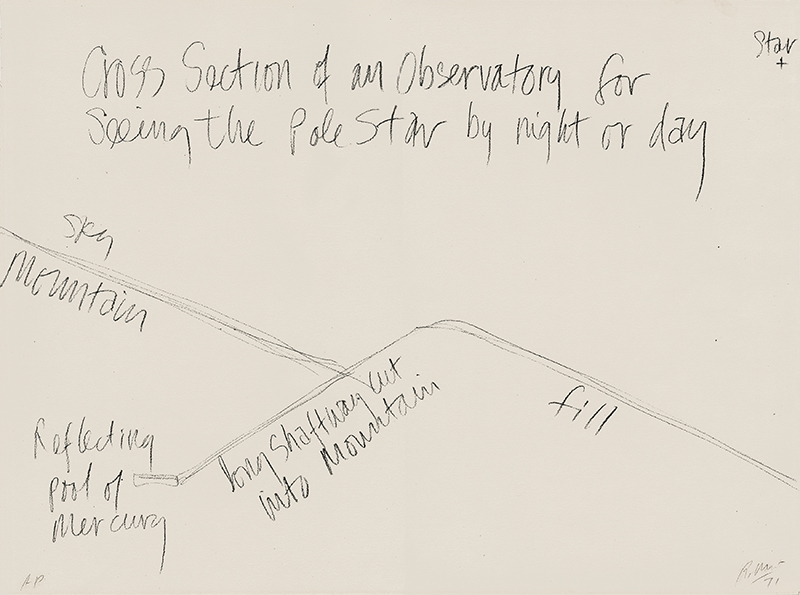 Star
+
Cross Section of an Observatory for
Seeing the Pole Star by night or day
Sky
Mountain
long shaftway cut
into Mountain
fill
Reflecting
pool of
Mercury
AP
71